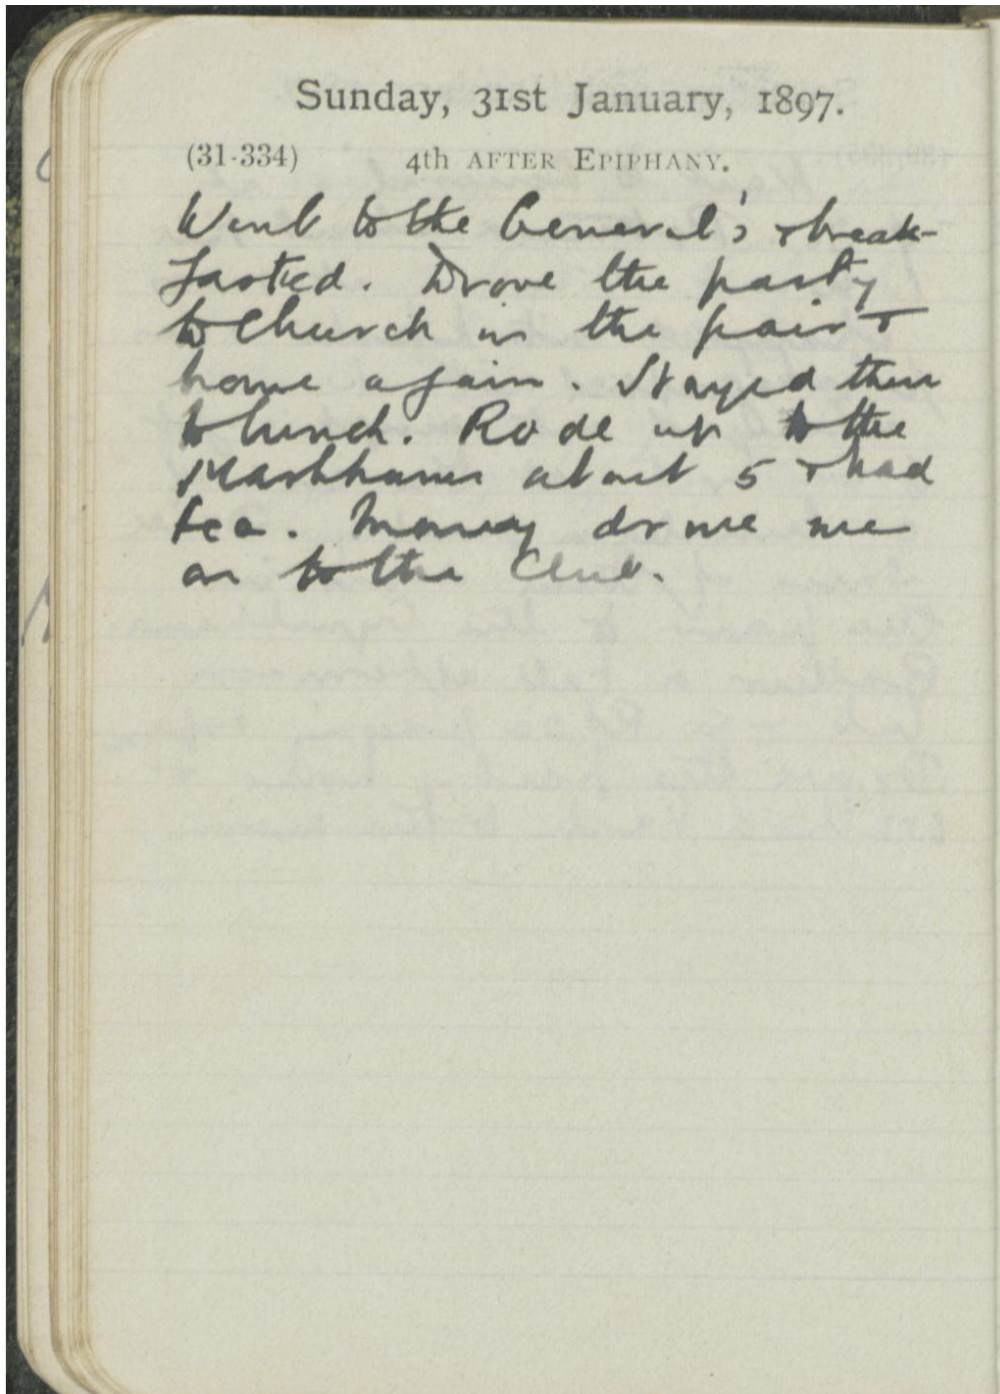 Sunday, 31st January, 1897.
(31-334) 4th AFTER EPIPHANY.
Went to the General's & break-
fasted. Drove the party
to Church in the pair &
home again. Stayed there
to lunch. Rode up to the
Markhams about 5 & had
tea. drove me
on to the Club.